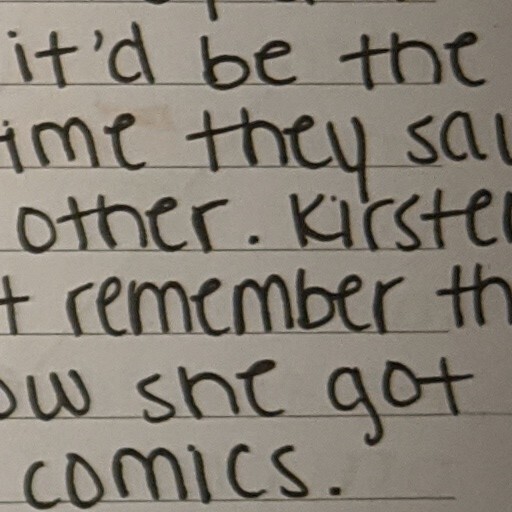 it'd be the
ime they
other. Kirsten
t remember th
ow she got
comics.